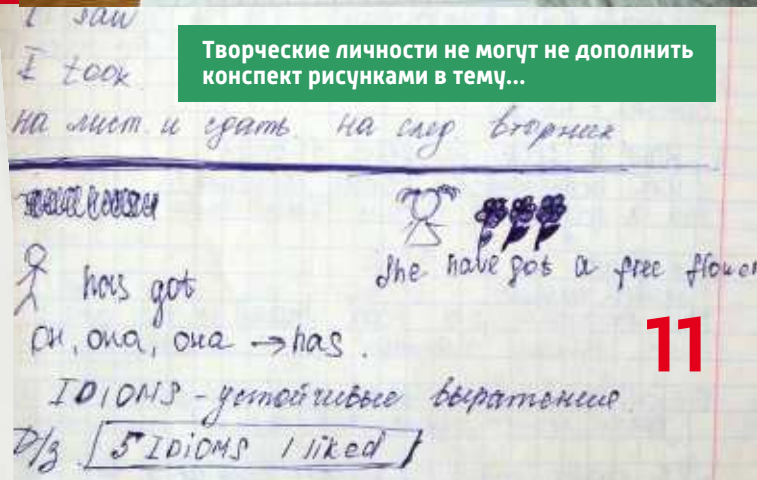 I saw
Творческие личности не могут не дополнить
конспект рисунками в тему...
I took
на лист и сдать на след вторник
She have got a free flower
has got
он, она, она → has.
11
IDIOMS - устойчивые выражение
D/з 5 IDIOMS I liked